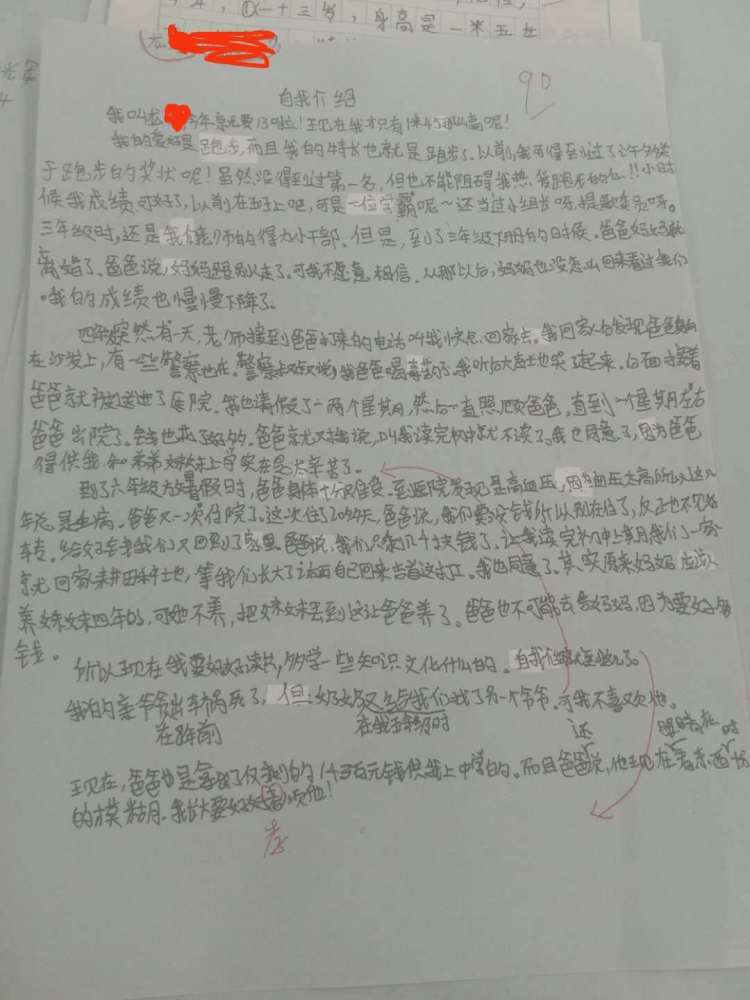 岁,身高是一米五
90
自我介绍
我叫龙 今年京尤要13啦!现在我才只有1米45那么高呢!
我的爱好是跑步,而且我的特长也就是跑步了.以前,我可得到过了许多关
于跑步的奖状呢!虽然没得到过第一名,但也不能阻碍我热爱跑步的心!!小时
候我成绩可好了,以前在班上吧,可是一位学霸呢~还当过小组长呀,
三年级时,还是我 老师的得力小干部.但是,到了三年级下册的时候.爸爸妈妈就
离婚了.爸爸说,妈妈跟别人走了.可我不愿意相信.从那以后,妈妈也没怎么回来看过我们
.我的成绩也慢慢下降了.
突然有一天,老师接到爸爸打来的电话叫我快点回家去.我回家后发现爸爸躺
在沙发上,有一些警察也在.警察叔叔说,我爸爸喝毒药了.我听后大声地哭了起来.后面
爸爸就被送进了医院.我也请假了一两个星期,然后一直照顾爸爸,直到一个星期左右
爸爸出院了.钱也花了好多.爸爸就对我说,叫我读完初中就不读了.我也同意了,因为爸爸
得供我和弟弟妹妹上学实在是太辛苦了.
到了六年级放暑假时,爸爸身体十分难受.到医院发现是高血压,因为血压太高所以这几
年总是生病.爸爸又一次住院了.这次住了20多天,爸爸说,我们要没钱所以别在住了,反正也不见好
转.给好转我们又回到了家里.爸爸说,我们只剩几千块钱了.让我读完初中上期我们一家
就回家来耕田种土也,等我们长大了话再自己回来 打工.我也同意了.其实原来妈妈应该
养妹妹四年的,可她不养,把妹妹丢到这让爸爸养了.爸爸也不可能去告妈妈,因为要好多
钱.
所以现在我要好好读书,多学一些知识文化什么的.自我介绍
我的亲爷爷出车祸死了,但:奶奶又给我们找了另一个爷爷.可我不喜欢他.
在 年前 在我五年级时 还 眼睛在 时
现在,爸爸也是拿出了仅剩的1千3百元钱供我上中学的.而且爸爸说,他现在看东西 好
的模糊.我长大要好好 他!
孝